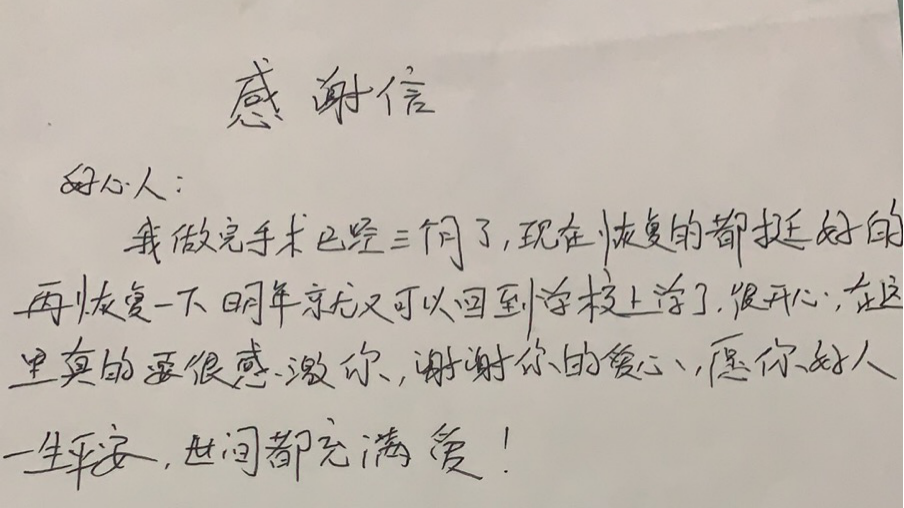 感谢信
好心人：
我做完手术已经三个月了，现在恢复的都挺好的
再恢复一下明年就又可以回到学校上学了，很开心，在这
里真的要很感激你，谢谢你的爱心，愿你好人
一生平安，世间都充满爱！